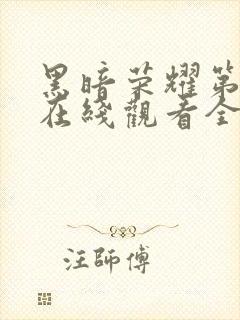 黑暗荣耀第
在綫觀看全
汪師傅